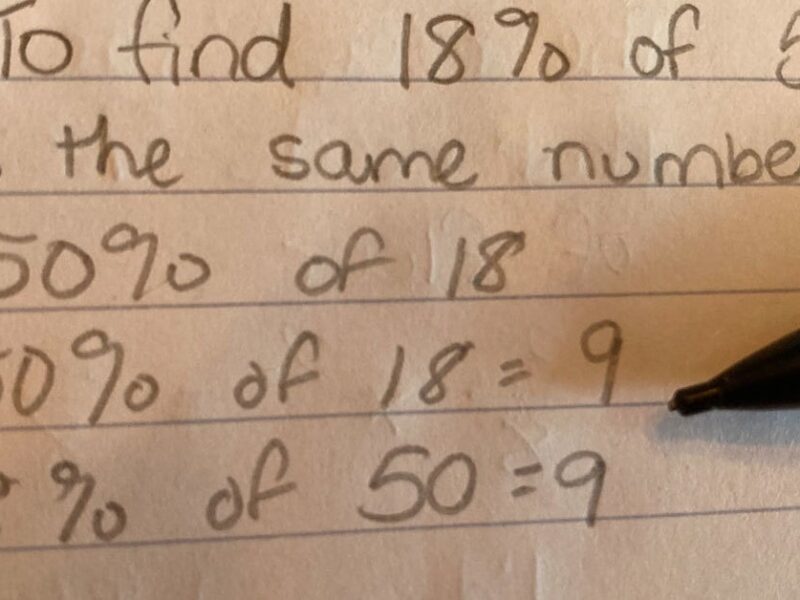 To find 18% of
the same numbe
50% of 18
50% of 18 = 9
% of 50 = 9